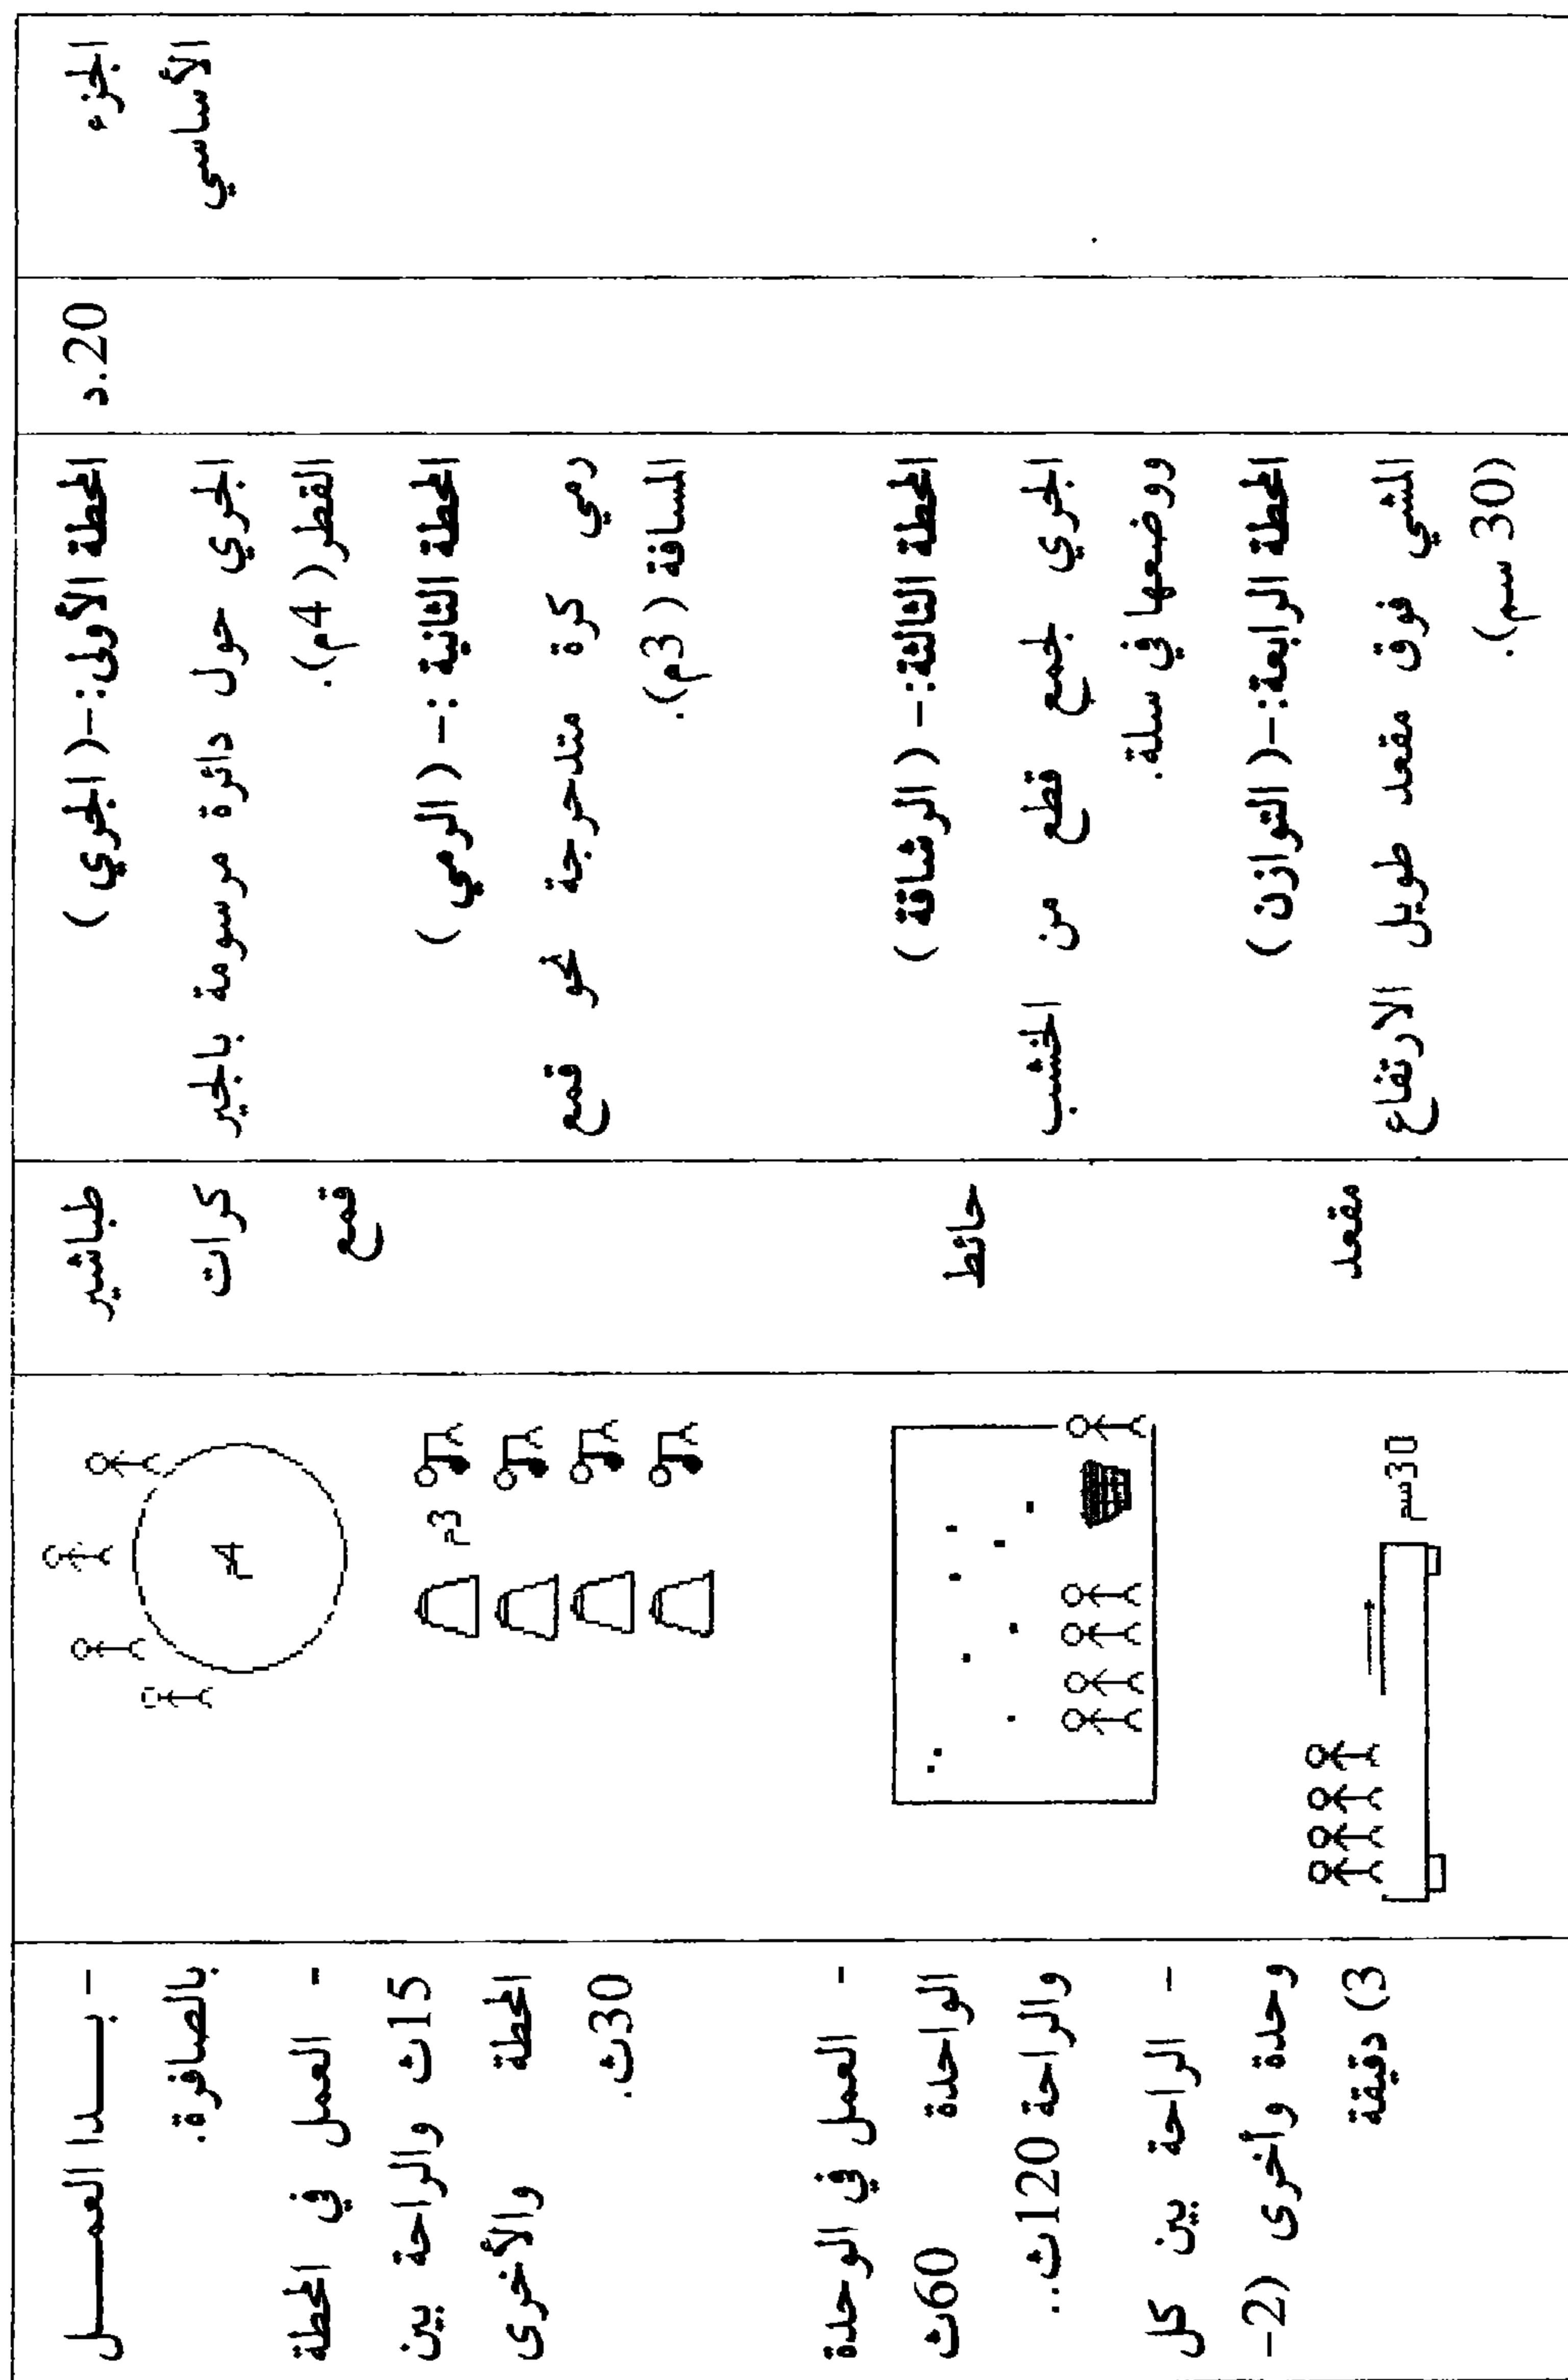 الجزء
الأساسي
20.د
المحطة الأولى:-( الجري )
الجري حول دائرة مرسومة بالجير
القطر( 4م).
المحطة الثانية :- ( الرمي )
رمي كرة متدحرجة نحو قمع
المسافة ( 3م).
المحطة الثالثة:- ( الرشاقة )
الجري لجمع قطع من الخشب
ووضعها في سلة.
المحطة الرابعة:-( التوازن )
المشي فوق مقعد طويل الارتفاع
(30 سم).
طباشير
كرات
قمع
حائط
مقعد
4م
3م
30سم
- بـــدا العمـــل
بالصافرة.
- العمل في المحطة
15ث والراحة بين
المحطة والأخرى
30ث.
- العمل في الوحدة
الواحدة 60ث
والراحة 120ث..
- الراحة بين كل
وحدة وأخرى (2-
3) دقيقة